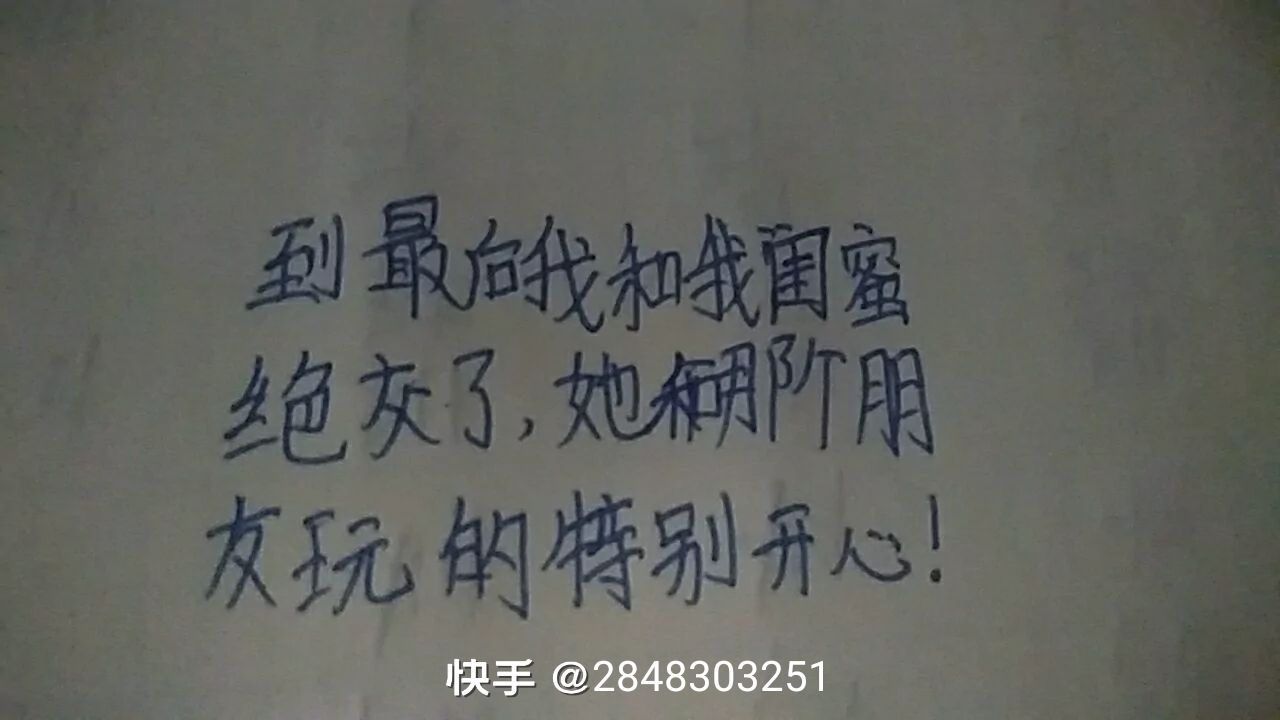 到最后我和我闺蜜
绝灰了,她和阶朋
友玩的特别开心!
快手 @2848303251